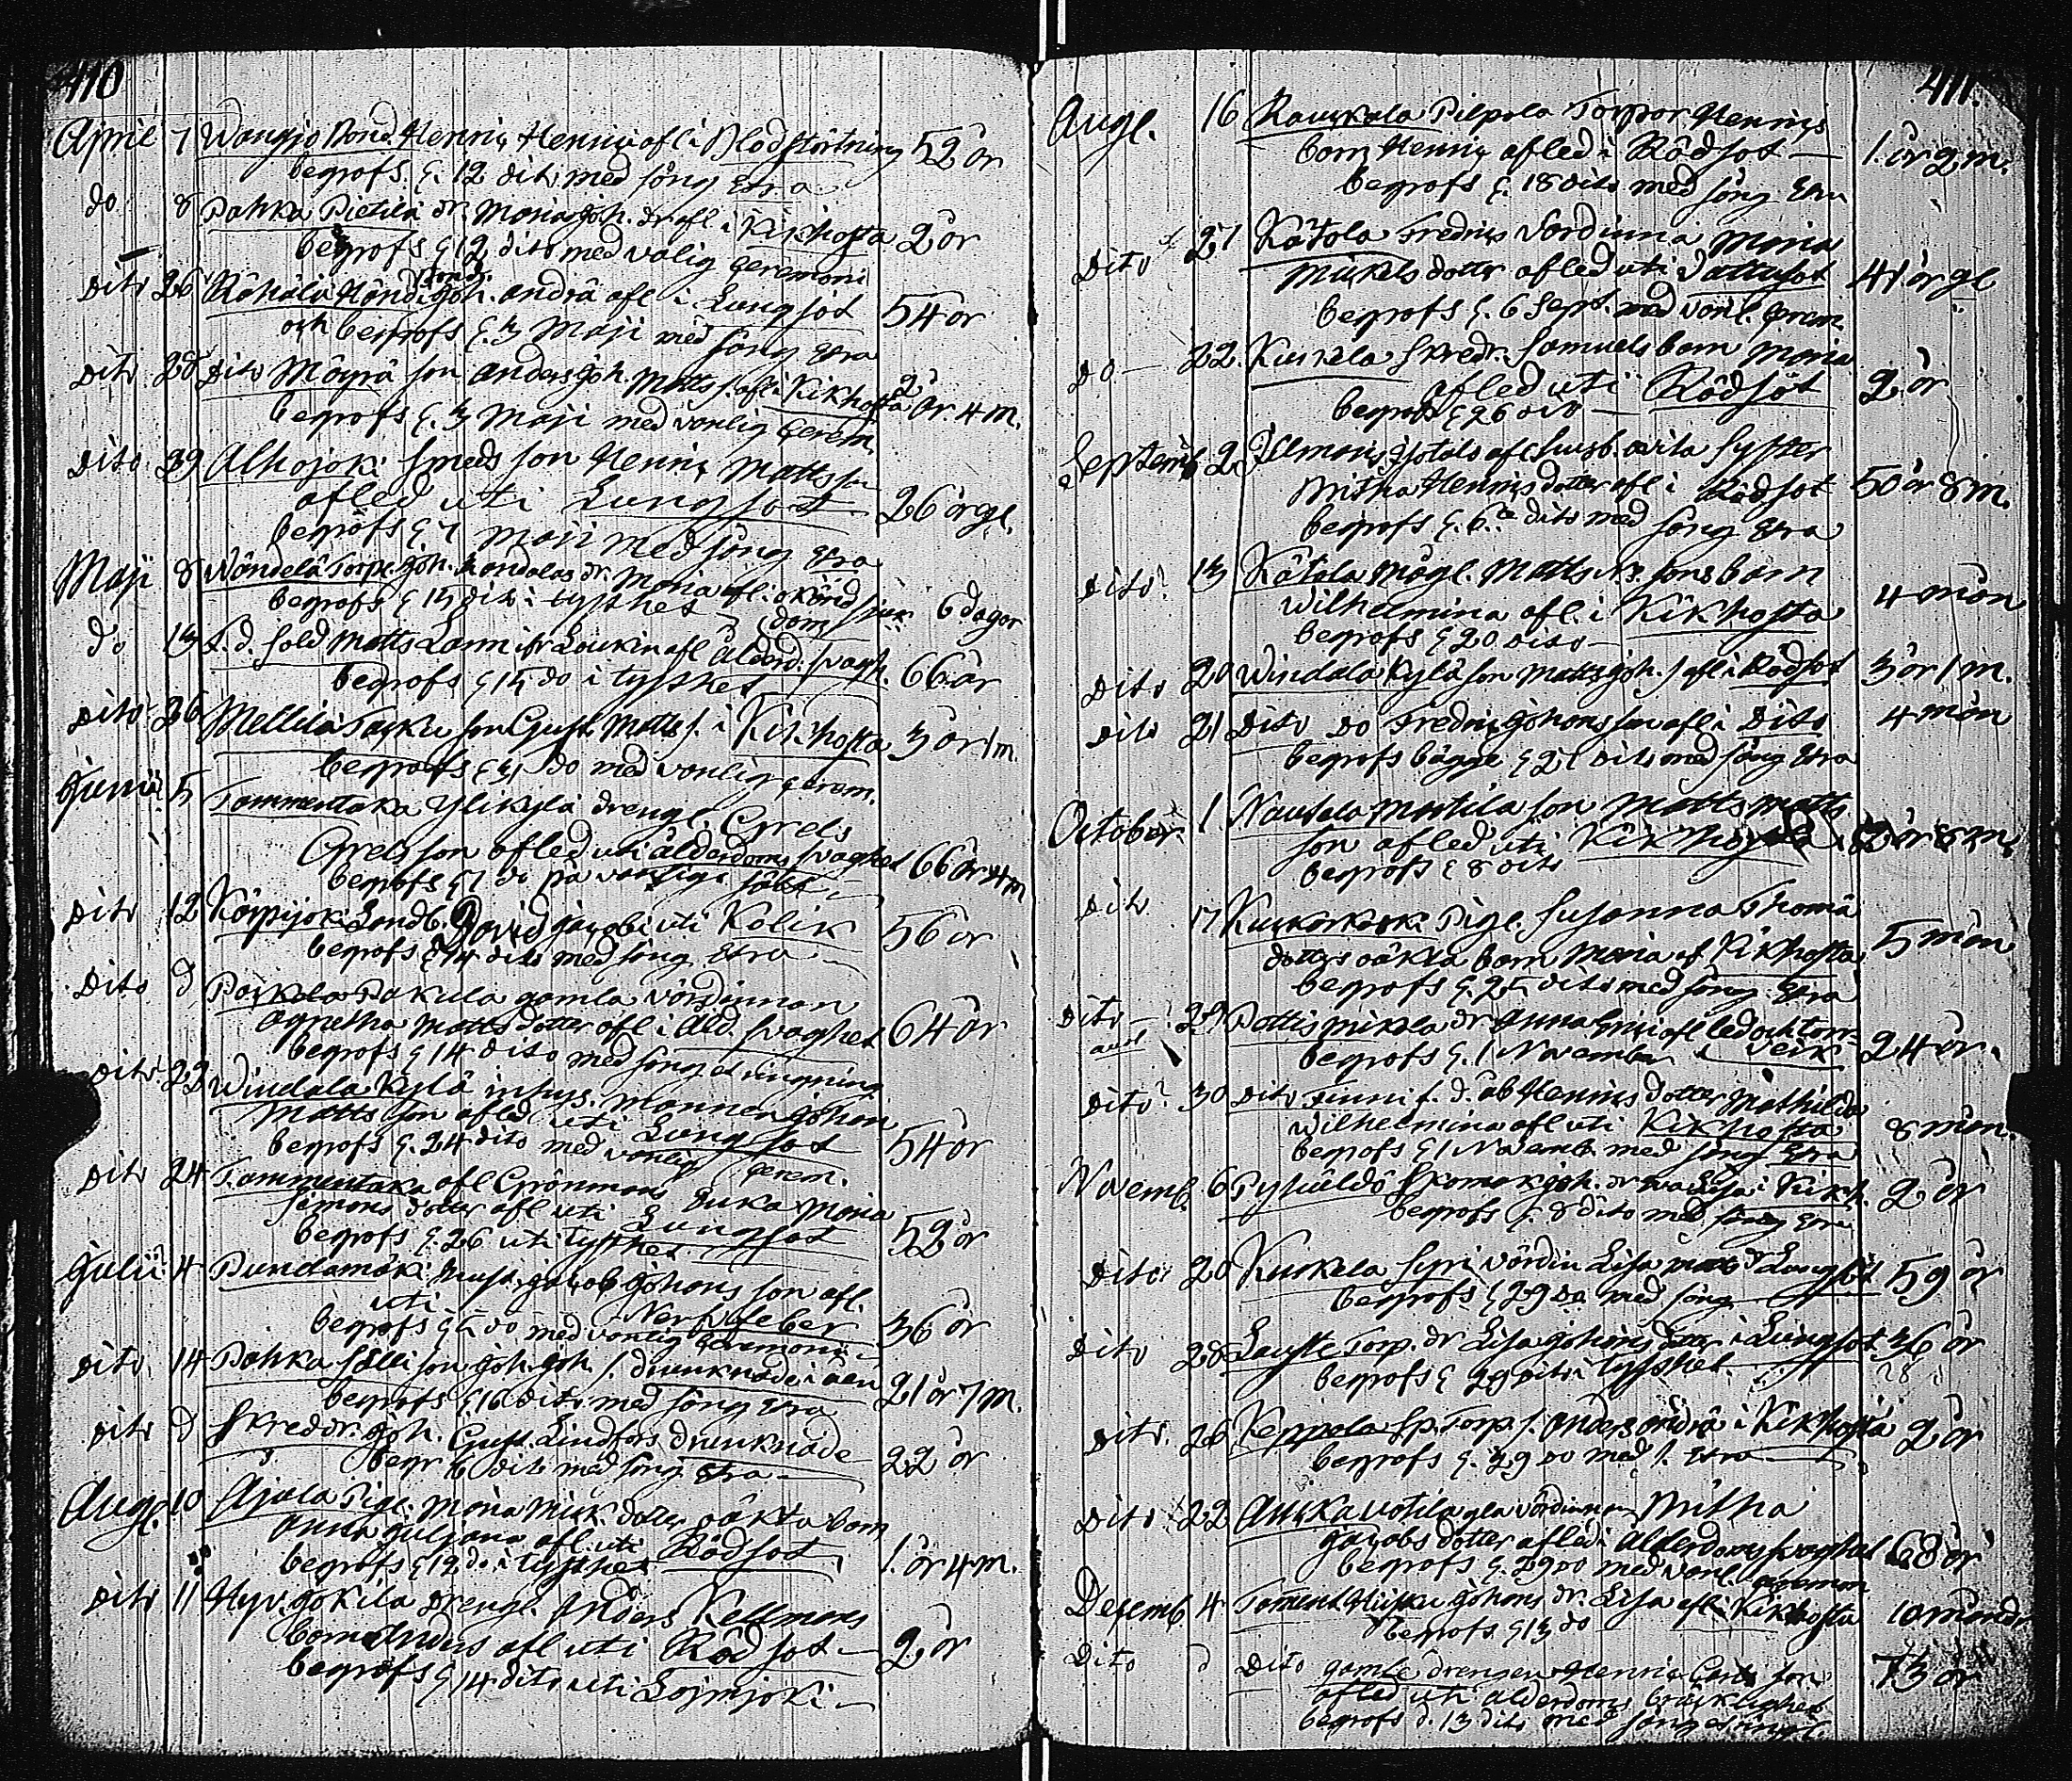 410
April 7 Wangjo Bond. Henric Henrici afl. i Blodstörtning 52 år
begrofs d. 12 dito med sång etra
do 8 Pahka Pietilä dr. Maria Joh. dr afl. i Kikhosta 2 år
begrofs d 12 dito med vålig ceremoni
Dito 26 Joh. Andrä afl. i Lungsot 54 år
och begrofs d. 3 Maji med sång etra
Dito 28 Dito Mägrä son Anders Joh. Matts s. afl i Kikhosta 2 år. 4 m.
begrofs d. 3 Maji med vanlig cerem.
Dito 29 Alhojoki Smeds son Henric Mattsson
afled uti Lungsot 26 år gl.
begrofs d. 7 Maji med sång etra
Maji 8 Torp. Joh. dr. Maria afl. i okänd sjuk 6 dagar
begrofs d 13 dito i tysthet dom
do 13 F. d. Sold Matts Lann fr Loukin afl ålderd. svagh. 66 år
begrofs d 15 do i tysthet
Dito 26 Mellilä Tasku son Gust. Matts s. i Kikhosta 3 år 1 m
begrofs d 31 do med vanlig cerem.
Junii 5 Tammentaka Ylikylä drengl. Grels
Grelsson afled uti ålderdoms svaghet 66 år 4 m
begrofs d 7 do på vanliga sätt
Dito 12 Karpijoki Landb. David Jacobi uti Kolik 56 år
begrofs d 14 dito med sång etra
Dito d Pakula gamla värdinnan
Agnetha Matts dotter afl i Åld. svaghet 64 år
begrofs d 14 dito med sång et ringning
Dito 22 Windala Kylä inhys. mannen Johan
Matts son afled uti Lungsot 54 år
begrofs d. 24 dito med vanlig cerem.
Dito 24 Tammentaka afl Grönmans Enka Maria
Simons dotter afl uti Lungsot 52 år
begrofs d. 26 uti tysthet
Julii 4 Pundamäki Jacob Johans son afl.
uti Nervfeber 36 år
begrofs d 5 do med vanlig ceremoni
Dito 14 Pahka Sälli son Joh. Joh. s. drunknade i åen 21 år 7 m.
begrofs d. 16 dito med sång etra
Dito d Skreddr. Joh. Gust. Lindfors drunknade 22 år
begr 16 dito med sång etra
Aug. 10 Ajala Pig. Maria Mick. dotter oäkta barn
Anna Juljana afl. uti Rödsot 1. år 4 m.
begrofs d 12 do i tysthet
Dito 11 Hyv. Jokila Drengl. Anders Kellmans
barn Anders afl uti Rödsot 2 år
begrofs d 14 dito uti Lojmjoki
411.
Augl. 16 Raukola Pilpola Torpar Henrics
barn Henric afled i Rödsot 1. år 2 m.
begrofs d. 18 dito med sång etra
Dito 27 Kåtola Fredrics Värdinna Maria
Mickels dotter afled uti Vattusot 41 år gl
begrofs d. 6 Sept. med vanl. cerem.
Do 22. Kuskela Skredr. Samuels barn Maria
afled uti Rödsot 2 år
begrofs d 26 dito
Septemb 2. Syster
Mitha Henrics dotter afl i Rödsot 50 år 8 m.
begrofs d. 6. dito med sång etra
Dito 13 Kåtola Mägl. Matts sons barn
Wilhelmina afl. i Kikhosta 4 mån
begrofs d 20 dito
Dito 20 Windala Kylä son Matts Joh. s afl i Rödsot 3 år 1 m.
Dito 21 Dito Do Fredric Johans son afl i Dito 4 mån
begrofs bägge d 27 dito med sång etra
October 1 Nautela Mattila son Matts Matts
son afled uti Kikhosta år 8 m.
begrofs d 8 dito
Dito 17 Kuukorkoski Pigl. Susanna Thomä
dotters oäkta barn Maria af Kikhosta 5 mån
begrofs d. 25 dito med sång etra
Dito 29 Pättis Mikola dr Anna afl led och torr-
begrofs d. 1 November verk 24 år
Dito 30 Dito Finni Henrics dotter Mathilda
Wilhelmina afl uti Kikhosta 8 mån.
begrofs d 1 Novemb med sång etra
Novemb. 6 Skomak Joh. dr i Kikh. 2 år
begrofs d. 8 dito med sång etra
Dito 20 Kuskela Syri värdin Lisa Matts dr Lungsot 59 år
begrofs d 29 do med sång
Dito 28 Lauste Torp. dr Lisa Johans dotter i Lungsot 36 år
begrofs d 29 dito i tysthet.
Dito 26 Keppola Sp. Torp. s. Anders Andrä i Kikhosta 2 år
begrofs d. 29 do med s. etra
Dito 22 Auska Uotila gla värdinnan Mitha
Jacobs dotter afled i Ålderdoms svaghet 68 år
begrofs d. 29 do med vanl. ceremon
Desemb. 4 Johans dr. Lisa afl. i Kikhosta 10 månadr
begrofs d 13 do
Dito d Dito gamle drengen Henric Carls son
afled uti ålderdoms bräcklighet 73 år
begrofs d. 13 dito med sång et ringl.